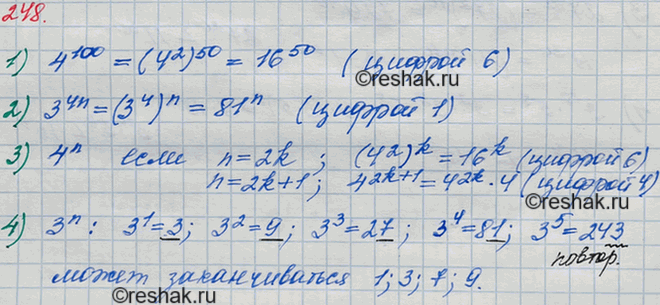 248.
1) 4^100 = (4^2)^50 = 16^50 (цифрой 6)
©reshak.ru
2) 3^4n = (3^4)^n = 81^n (цифрой 1)
3) 4^n если n = 2k ; (4^2)^k = 16^k (цифрой 6)
n = 2k+1 ; 4^2k+1 = 4^2k · 4 (цифрой 4)
4) 3^n : 3^1 = 3; 3^2 = 9; 3^3 = 27 ; 3^4 = 81; 3^5 = 243
повтор.
может заканчиваться 1; 3; 7; 9.
©reshak.ru